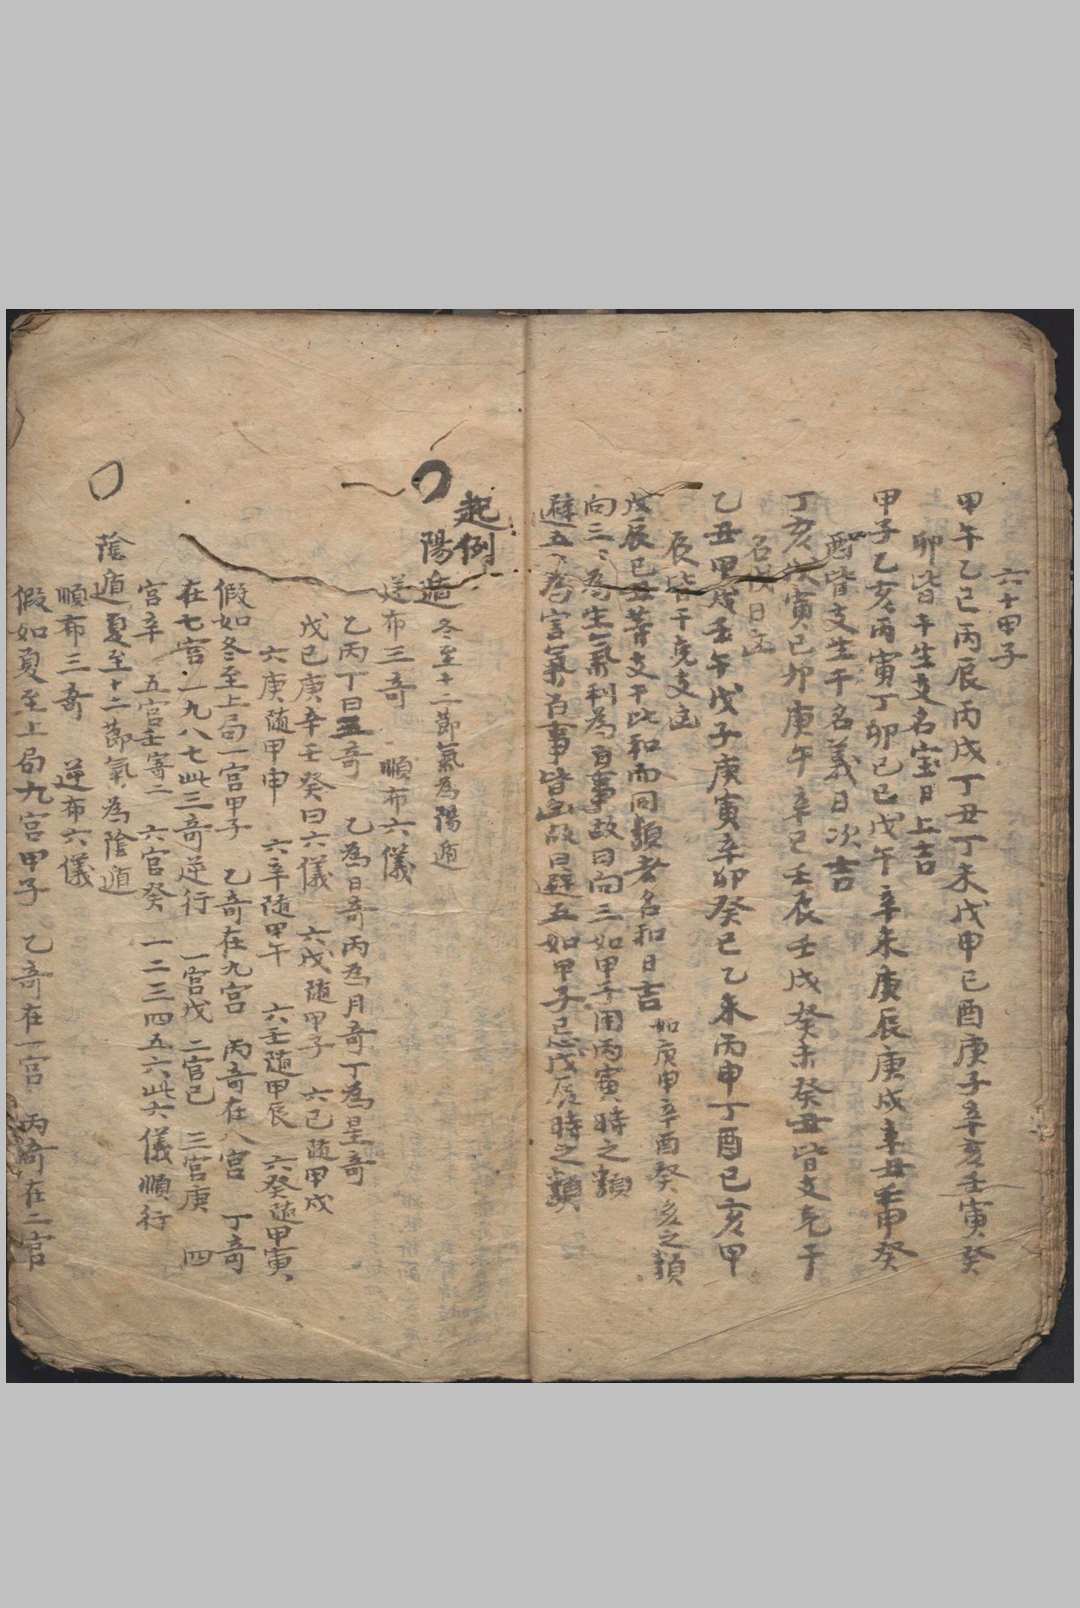 六十甲子
甲午乙巳丙辰丙戌丁丑丁未戊申己酉庚子辛亥壬寅癸
卯皆干生支名宝日上吉
甲子乙亥丙寅丁卯己巳戊午辛未庚辰庚戌辛丑壬申癸
酉皆支生干名義日次吉
丁亥戊寅己卯庚午辛巳壬辰壬戌癸未癸丑皆支克干
名伐日凶
乙丑甲戌壬午戊子庚寅辛卯癸巳乙未丙申丁酉己亥甲
辰皆干克支凶
戊辰己丑等支干比和而同類者名和日吉 如庚申辛酉癸亥之類
向三為生氣利為百事故曰向三如甲子用丙寅時之類
避五為害氣百事皆凶故曰避五如甲子忌戊辰時之類
起例
陽遁 冬至十二節氣為陽遁
逆布三奇 順布六儀
乙丙丁曰三奇 乙為日奇丙為月奇丁為星奇
戊己庚辛壬癸曰六儀 六戊随甲子 六己随甲戌
六庚随甲申 六辛随甲午 六壬随甲辰 六癸随甲寅
假如冬至上局一宫甲子 乙奇在九宫 丙奇在八宫 丁奇
在七宫一九八七此三奇逆行 一宫戊 二宫己 三宫庚 四
宫辛 五宫壬寄二 六宫癸 一二三四五六此六儀順行
陰遁 夏至十二節氣為陰遁
順布三奇 逆布六儀
假如夏至上局九宫甲子 乙奇在一宫 丙奇在二宫